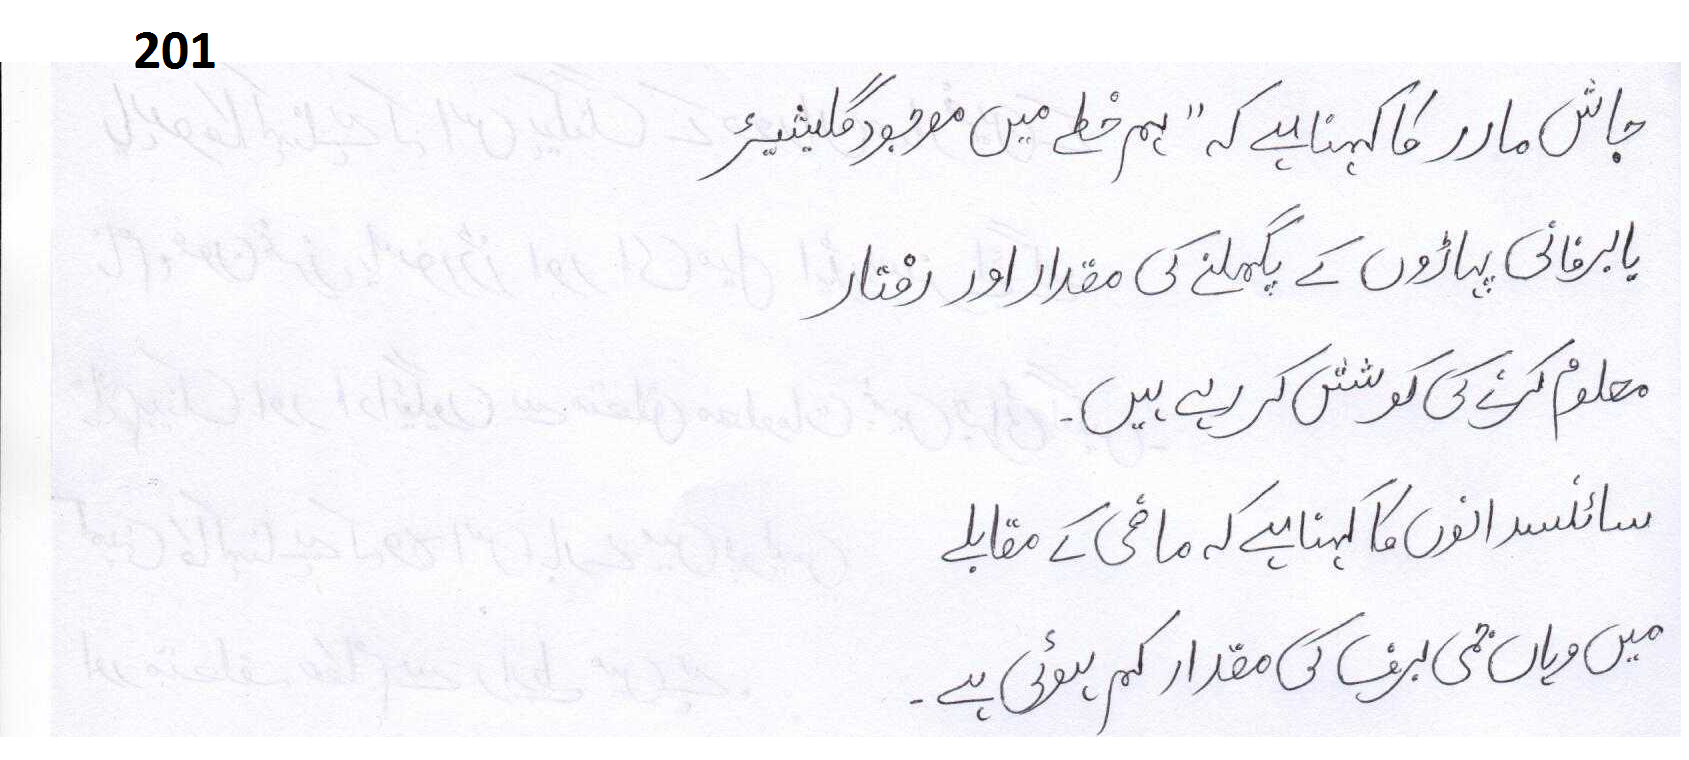 201
جاش مارر کا کہنا ہے کہ "ہم خطے میں موجود گلیشیئر
یا برفانی پہاڑوں کے پگھلنے کی مقدار اور رفتار
معلوم کرنے کی کوشش کر رہے ہیں۔
سائنسدانوں کا کہنا ہے کہ ماضی کے مقابلے
میں وہاں جمی برف کی مقدار کم ہوئی ہے۔